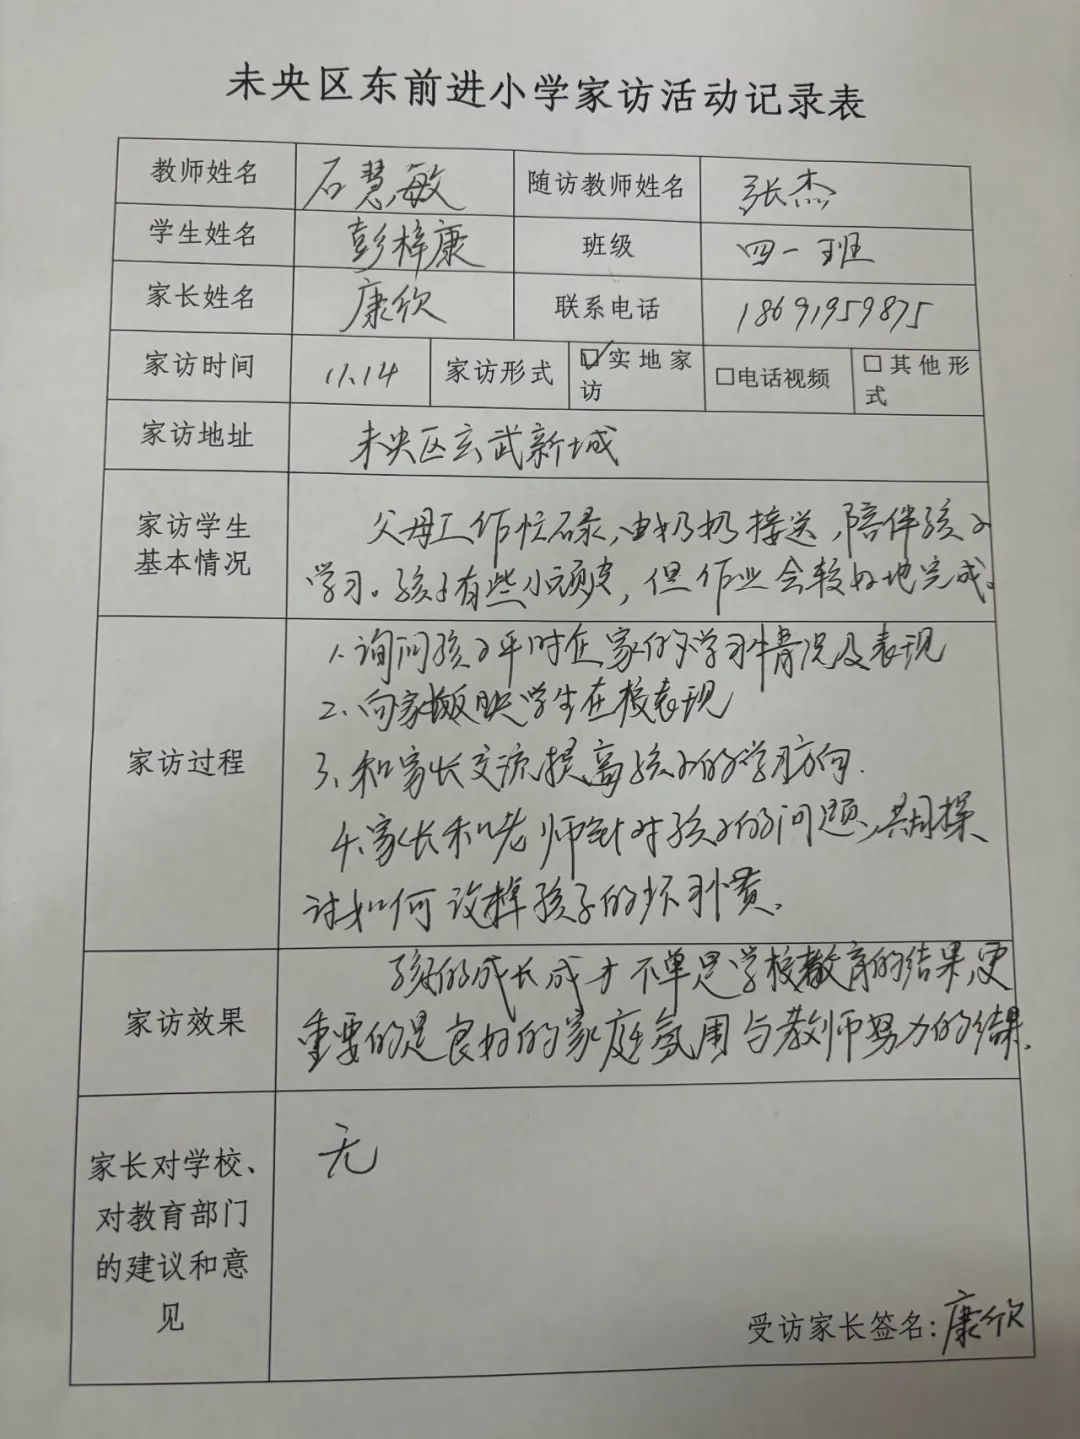 未央区东前进小学家访活动记录表
教师姓名 石慧敏 随访教师姓名 张杰
学生姓名 彭梓康 班级 四一班
家长姓名 康欣 联系电话 18691959875
家访时间 11.14 家访形式 ☑实地家访 □电话视频 □其他形式
家访地址 未央区玄武新城
家访学生基本情况
父母工作忙碌,由奶奶接送,陪伴孩子
学习。孩子有些小顽皮,但作业会较好地完成。
家访过程
1.询问孩子平时在家的学习情况及表现
2、向家长反映学生在校表现
3、和家长交流提高孩子的学习方向.
4、家长和老师针对孩子的问题,共同探
讨如何改掉孩子的坏习惯。
家访效果
孩子的成长成才不单是学校教育的结果,更
重要的是良好的家庭氛围与教师努力的结果.
家长对学校、
对教育部门
的建议和意
见
无
受访家长签名:康欣